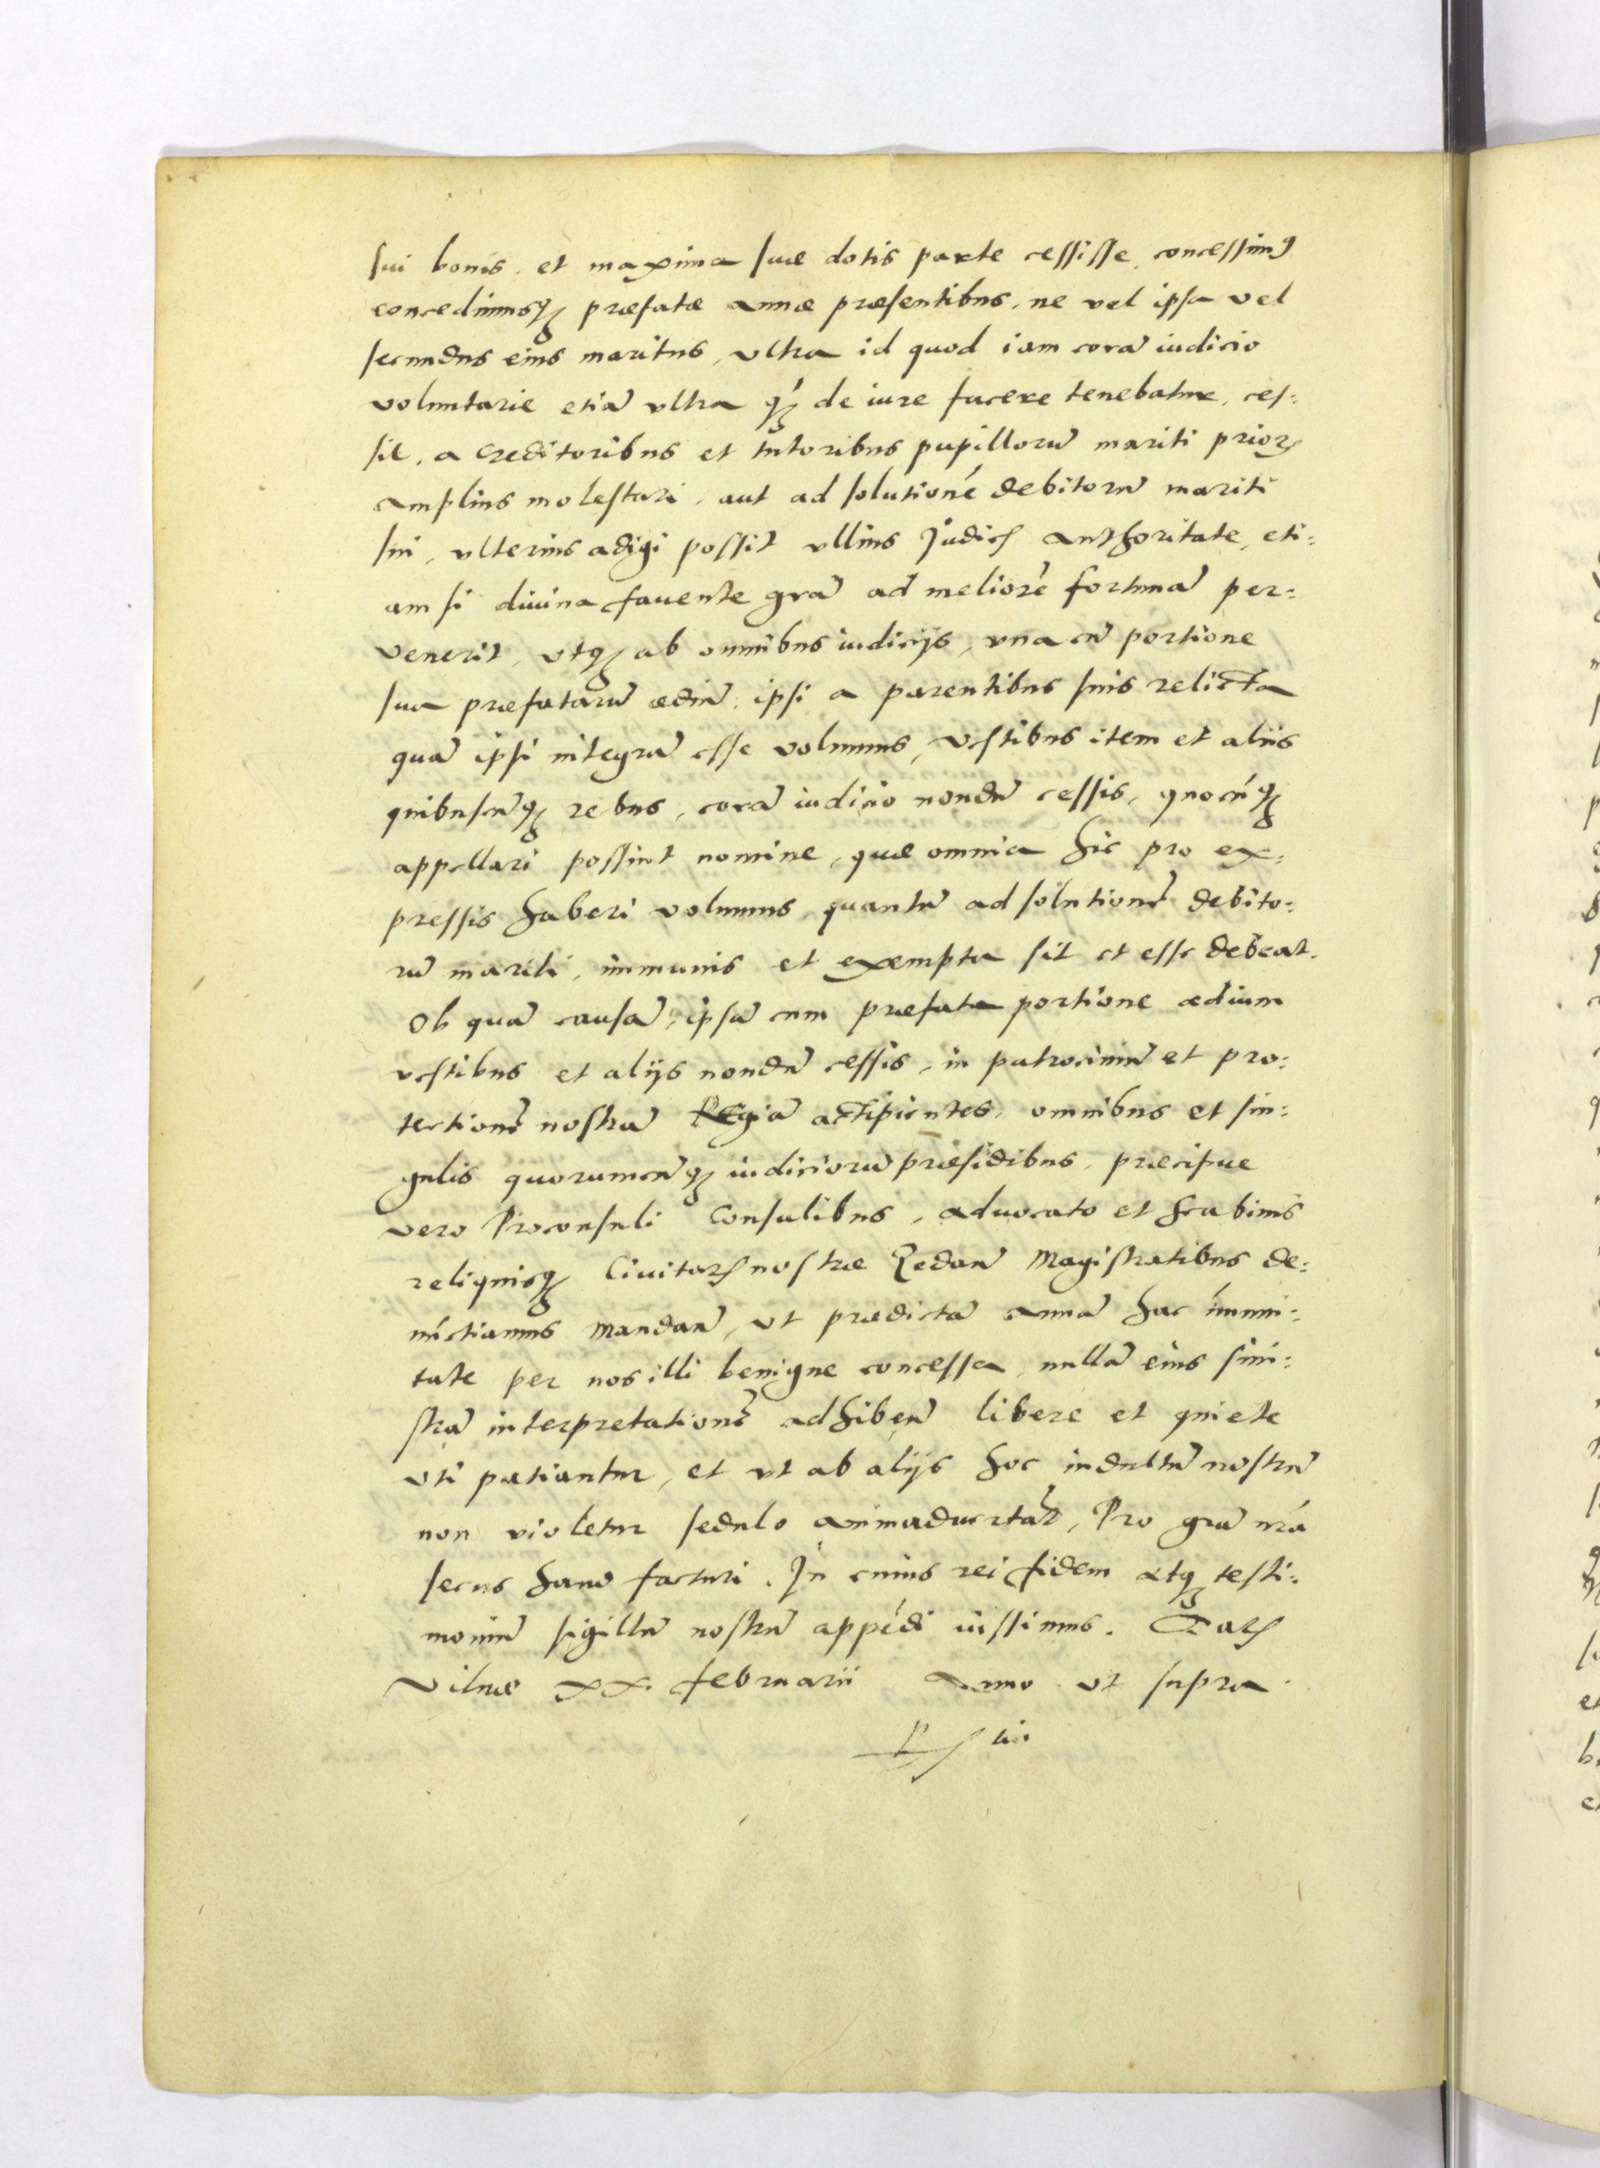 sui bonis. et maxima suæ dotis parte cessisse, concessimꝰ
concedimusqꝫ præfatæ Annæ præsentibus, ne vel ipsa vel
secundus eius maritus, vltra id quod iam corā iudicio
voluntarie etiā vltra qꝫ́ de iure facere tenebatur, ces:
sit, a Creditoribus et tutoribus pupillorū mariti prioꝝ
amplius molestari, aut ad solutionē debitorū mariti
sui, vlterius adigi possit vllius Judicꝭ authoritate, eti:
am si diuina fauente gra̅ ad meliorē fortunā per:
venerit, vtqꝫ ab omnibus iudicijs, vna cū portione
sua præfatarū ædiū, ipsi a parentibus suis relicta
quā ipsi integrā esse volumus, vestibus item et aliis
quibuscūqꝫ rebus, corā iudicio nondū cessis, quocūqꝫ
appellari possint nomine, quæ omnia hic pro ex:
pressis haberi volumus, quantū ad solutionē debito:
rū mariti, immunis et exempta sit et esse debeat.
Ob quā causā, ipsā cum præfata portione ædium
vestibus et alijs nondū cessis, in patrociniū et pro:
tectionē nostrā Regiā accipientes, omnibus et sin:
gulis quorumcūqꝫ iudiciorū præsidibus, præcipue
vero Proconsuli Consulibus, aduocato et scabinis
reliquisqꝫ Ciuitatꝭ nostræ Gedan̄ Magistratibus de:
nūctiamus mandan̄, vt prædictā Annā hac īmuni:
tate per nos illi benigne concessa, nullā eius sini:
strā interpretationē adhiben̄ libere et quiete
vti patiantur, et vt ab alijs hoc indultū nostrū
non violetur sedulo animaduertāt, Pro gra̅ nr̄a
secus haud facturi. In cuius rei fidem atqꝫ testi:
moniū sigillū nostrū appēdi iussimus. Datꝭ
Vilnæ XX. februarii Anno vt supra